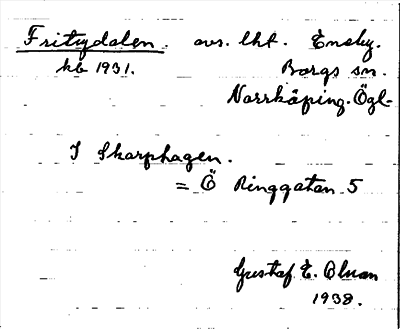 Fritzydalen. avs. lht. Eneby.
kb 1931. Borgs sn.
Norrköping. Ögl.
I Skarphagen.
= Ö Ringgatan 5
Gustaf E. Olson
1938.